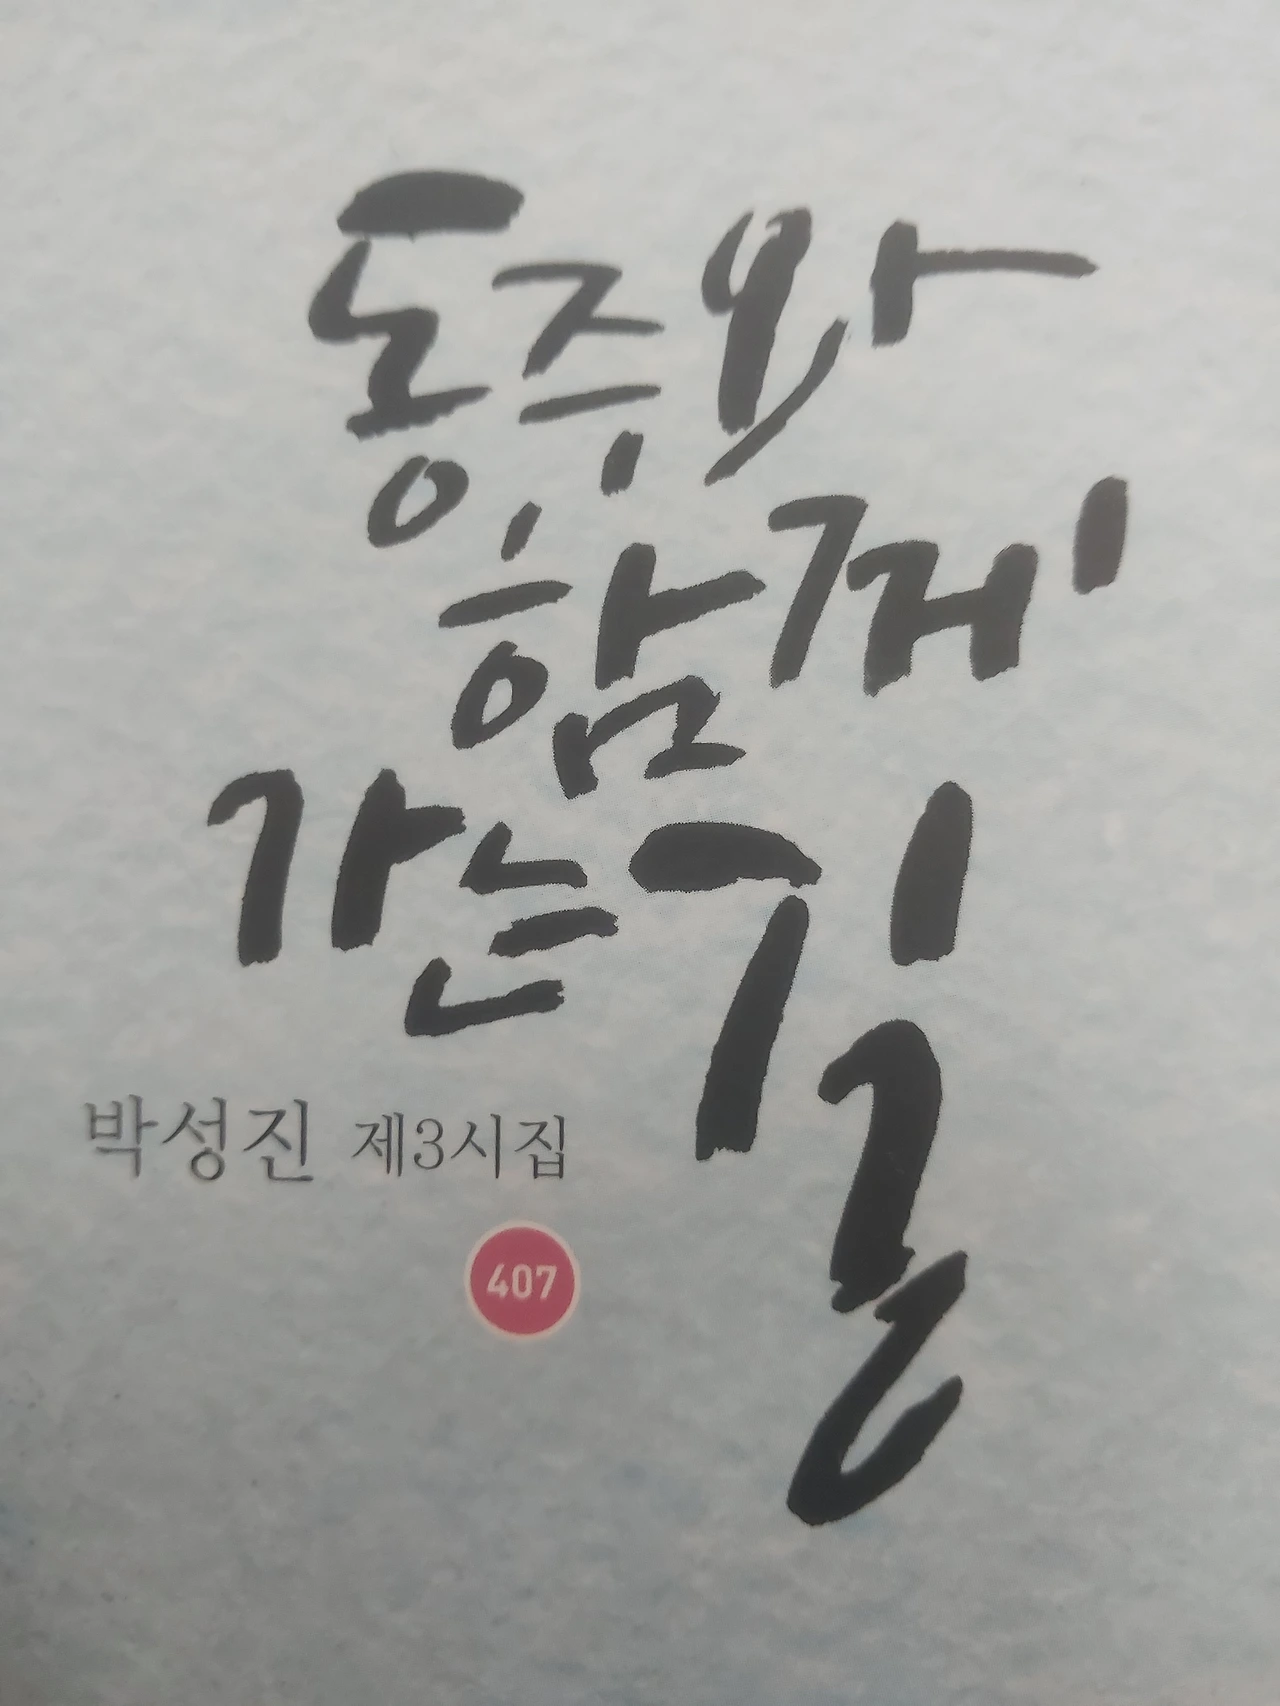 동주와
함께
가는 길
박성진 제3시집
407